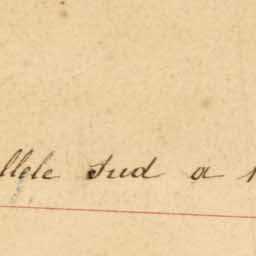 llele Sud a